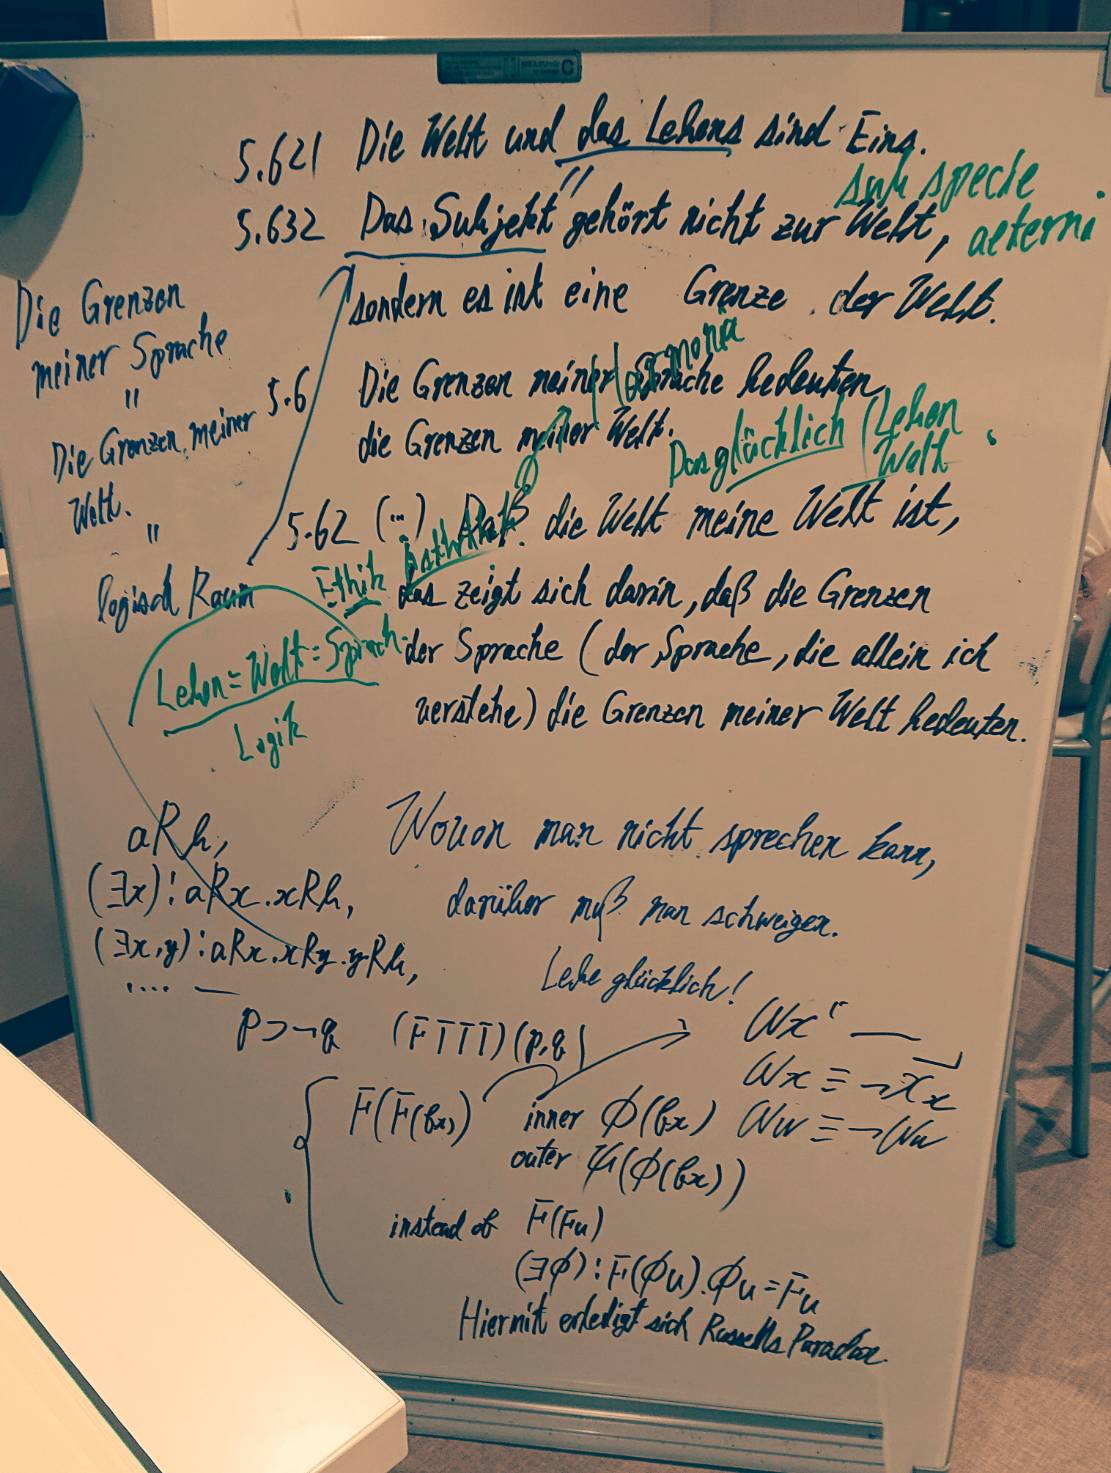 5.621 Die Welt und das Lebens sind Eins.
sub specie
aeterni
5.632 Das Subjekt gehört nicht zur Welt,
sondern es ist eine Grenze der Welt.
Die Grenzen
meiner Sprache
"
Die Grenzen meiner
Welt.
"
logisch Raum
5.6 Die Grenzen meiner Sprache bedeuten
die Grenzen meiner Welt.
Harmonie
Das glücklich Leben
Welt
5.62 (...) Daß die Welt meine Welt ist,
das zeigt sich darin, daß die Grenzen
der Sprache (der Sprache, die allein ich
verstehe) die Grenzen meiner Welt bedeuten.
Ethik Ästhetik
Leben = Welt = Sprach
Logik
aRb,
(∃x):aRx.xRb,
(∃x,y):aRx.xRy.yRb,
....
Wovon man nicht sprechen kann,
darüber muß man schweigen.
Lebe glücklich!
p⊃¬q (FTTT)(p,q)
Wx
Wx ≡ ¬xx
Ww ≡ ¬Ww
F(F(fx)) inner Φ(fx)
outer Ψ(Φ(fx))
instead of F(Fu)
(∃Φ):F(Φu).Φu=Fu
Hiermit erledigt sich Russells Paradox.